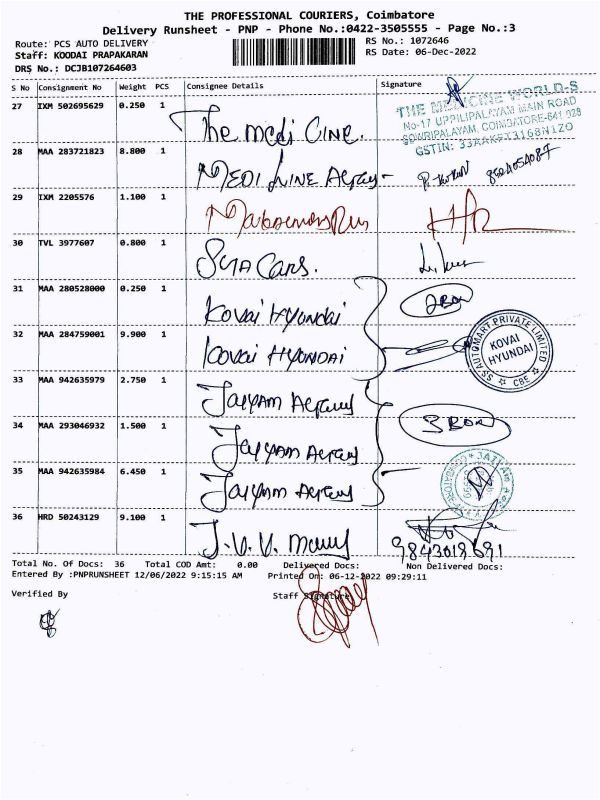 THE PROFESSIONAL COURIERS, Coimbatore
Delivery Runsheet - PNP - Phone No.:0422-3505555 - Page No.:3
Route: PCS AUTO DELIVERY RS No.: 1072646
Staff: KOODAI PRAPAKARAN RS Date: 06-Dec-2022
DRS No.: DCJB107264603
S No Consignment No Weight PCS Consignee Details Signature
27 IXM 502695629 0.250 1 The medi CINE.
THE MEDICINE WORLD-S
No-17 UPPILIPALAYAM MAIN ROAD
SOWRIPALAYAM, COIMBATORE-641 028
28 MAA 283721823 8.800 1 MEDI LINE
29 IXM 2205576 1.100 1
30 TVL 3977607 0.800 1 Cars.
31 MAA 280528000 0.250 1 Kovai Hyundai 2 Box
32 MAA 284759001 9.900 1 Kovai HYUNDAI
SS AUTOMART PRIVATE LIMITED
KOVAI
HYUNDAI
CBE
33 MAA 942635979 2.750 1
34 MAA 293046932 1.500 1 3 Box
35 MAA 942635984 6.450 1
36 HRD 50243129 9.100 1 J.V.V.
Total No. Of Docs: 36 Total COD Amt: 0.00 Delivered Docs: Non Delivered Docs:
Entered By :PNPRUNSHEET 12/06/2022 9:15:15 AM Printed On: 06-12-2022 09:29:11
Verified By Staff Signature